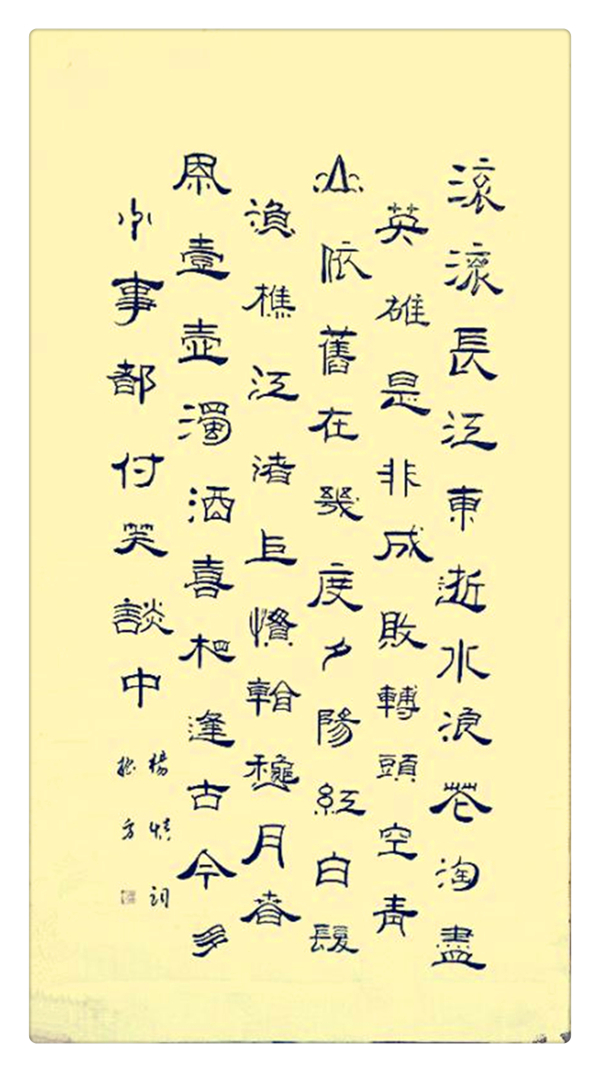 滾滾長江東逝水浪花淘盡
英雄是非成敗轉頭空青
山依舊在幾度夕陽紅白髮
漁樵江渚上慣看秋月春
風壹壺濁酒喜相逢古今多
少事都付笑談中
楊慎詞
方